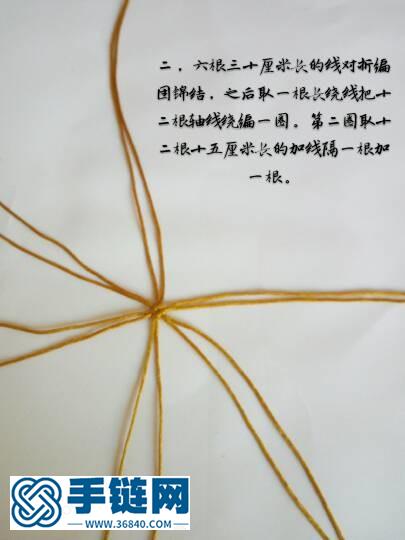 二．六根三十厘米长的线对折编
团锦结，之后取一根长绕线把十
二根轴线绕编一圈。第二圈取十
二根十五厘米长的加线隔一根加
一根。
手链网
WWW.36840.COM